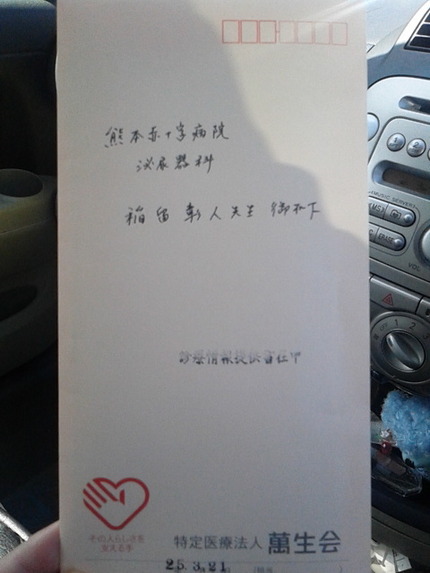 熊本赤十字病院
泌尿器科
稲留彰人先生 御机下
診療情報提供書在中
その人らしさを
支える手
特定医療法人 萬生会
25.3.21